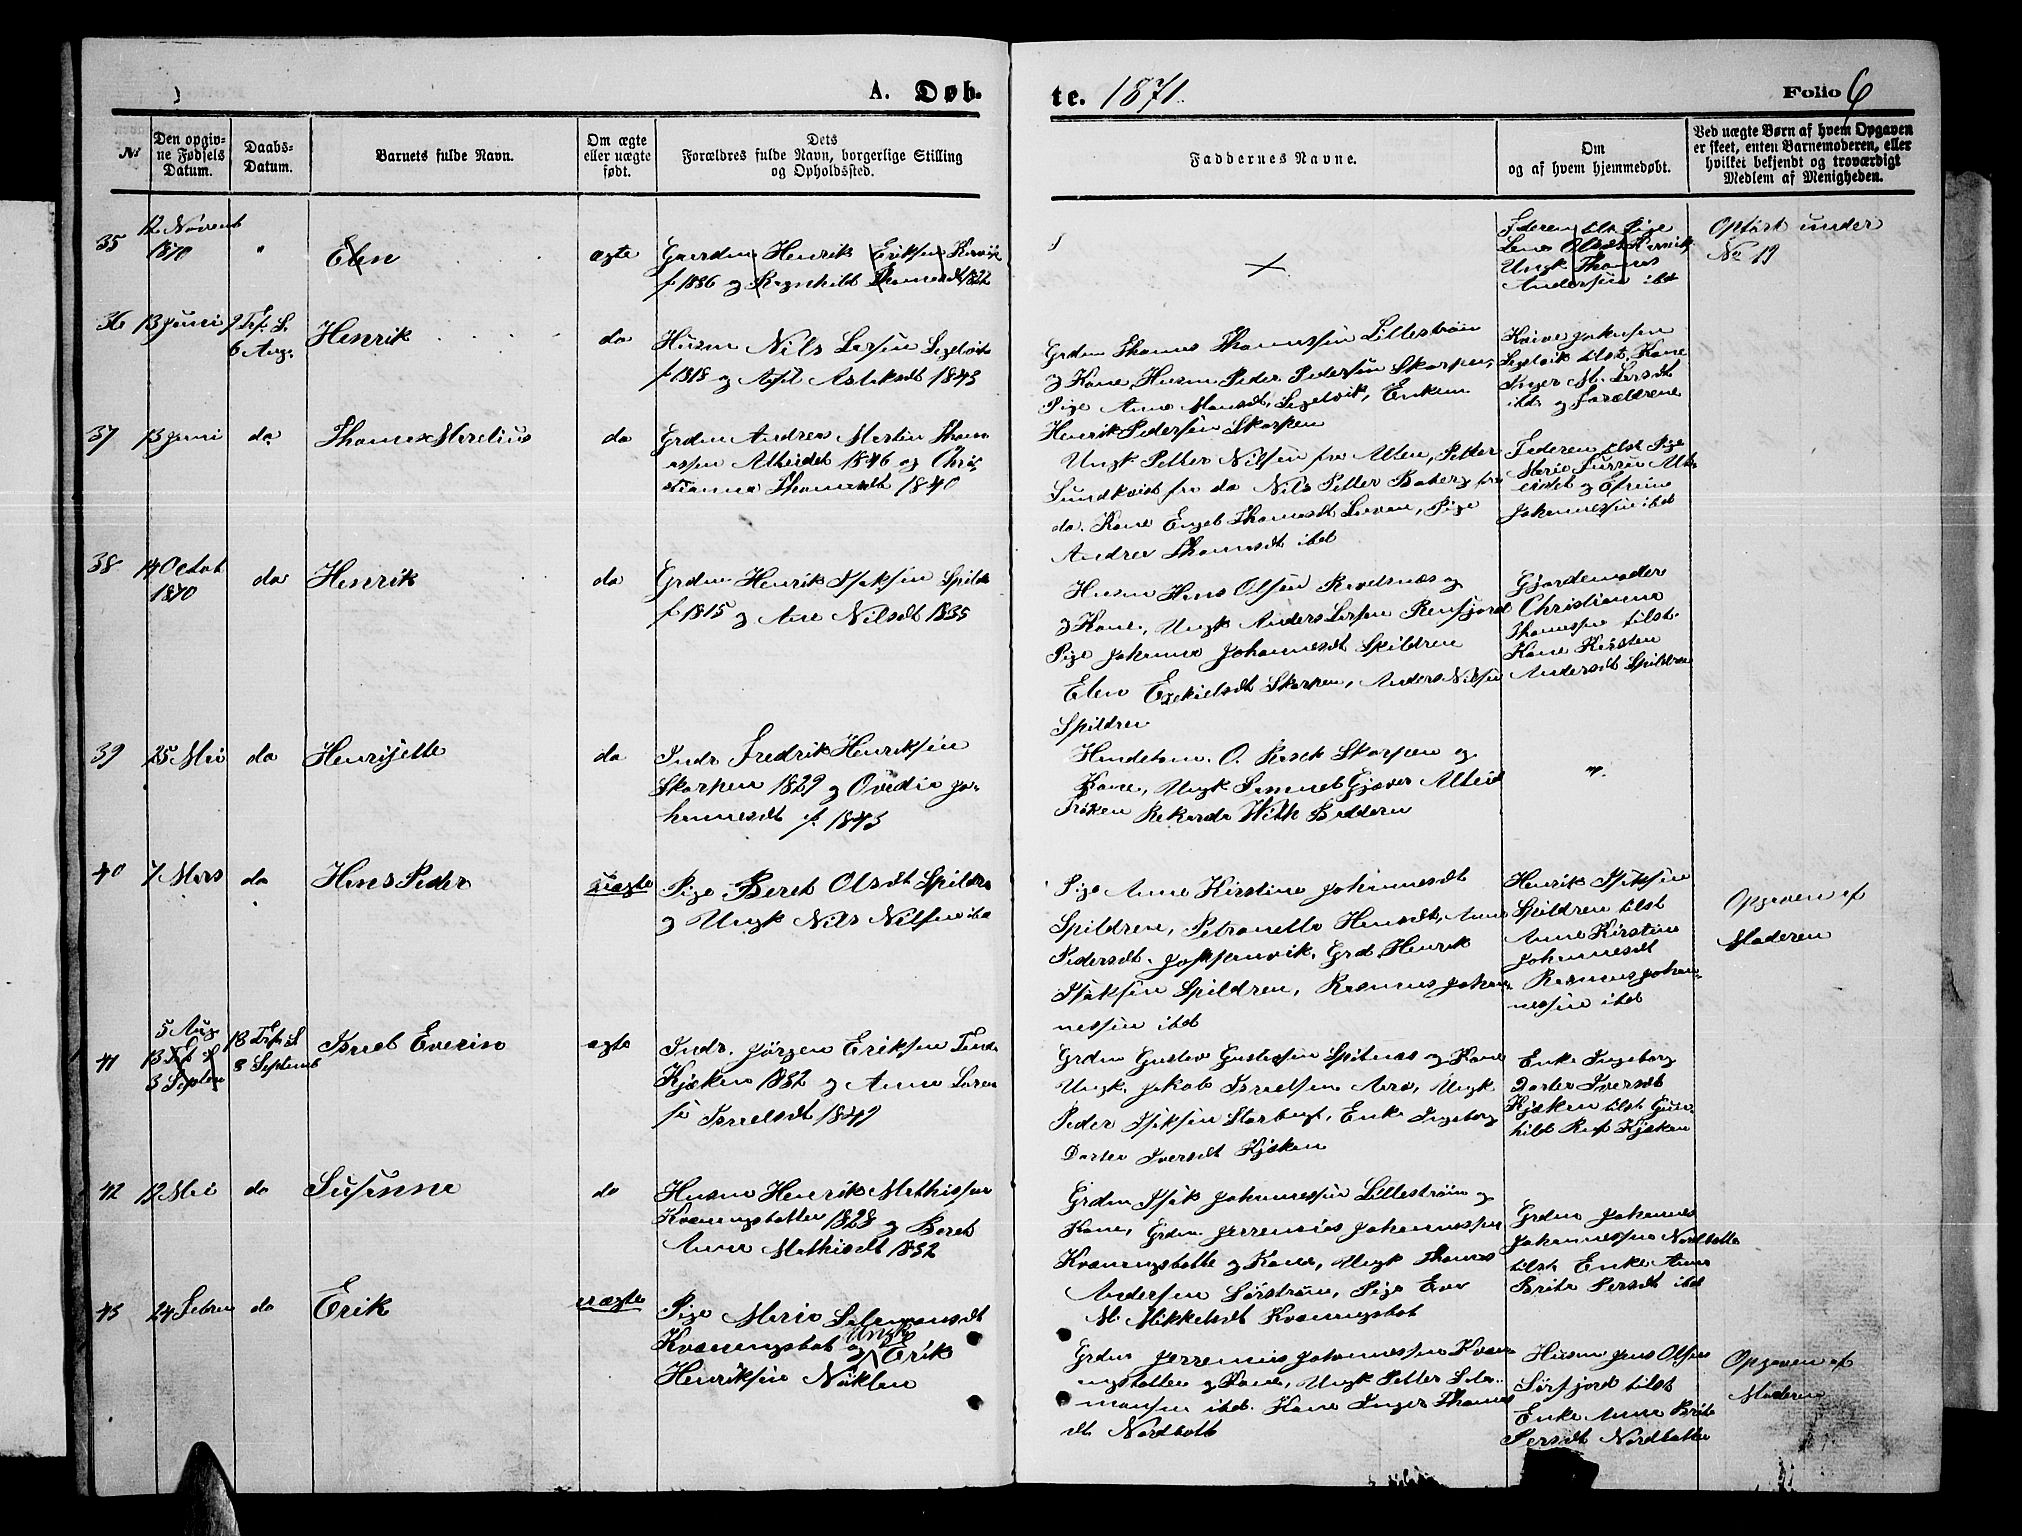 A. Døb.
te. 1871.
Folio 6
№
Den opgiv-
ne Fødsels
Datum.
Daabs-
Datum.
Barnets fulde Navn.
Om ægte
eller uægte
født.
Dets
Forældres fulde Navn, borgerlige Stilling
og Opholdssted.
Faddernes Navne.
Om
og af hvem hjemmedøbt.
Ved uægte Børn af hvem Opgaven
er skeet, enten Barnemoderen, eller
hvilket bekjendt og troværdigt
Medlem af Menigheden.
35
12 Novemb
1870
"
Elen
ægte
Gaardm Henrik Eriksen
f 1836 og Ragnhild Thomasdt 1832
Faderen tilst Pige
Lena Olsdt
Ungk Thomas
Andersen ibd
Opført under
No 19
36
13 Juni
9 Trf. S.
6 Aug.
Henrik
do
Husm Nils Larsen Segelvik
f 1818 og Asletsdt 1843
Grdm Thomas Thomassen Lillestrøm
og Kone, Husm Peder Pedersen Skorpen,
Pige Anne Monsdt, Segelvik, Enkem
Henrik Pedersen Skorpen
Johnsen
Segelvik tilst. Kone
Inger M. Larsdt
ibd. og Forældrene
37
13 Juni
do
Thomas Marelius
do
Grdm Andrea Martin Thom
assen Alteidet 1846 og Chri
stianna Thomasdt 1840
Ungk Petter Nilsen fra Alten, Petter
Sundkvist fra do Nils Petter fra
do. Kone Engel Thomasdt, Pige
Andrea Thomasdt ibd
Faderen tilst Pige
Marie
eidet og
Johannessen ibd
38
14 Octob
1870
do
Henrik
do
Grdm Henrik Isaksen Spildr
f. 1815 og Ane Nilsdt 1835
Husm Hans Olsen Ravelsnæs og
og Kone, Ungk Anders Larsen Rensfjord
Pige Johanna Johannesdt Spildren
Elen Ezekielsdt Skorpen, Anders Nilsen
Spildren
Gjordemoder
Christianna
Thomassen tilst.
Kone Kirsten
Andersdt Spildren
39
25 Mai
do
Henrijette
do
Indr. Fredrik Henriksen
Skorpen 1829 og Ovedia Jo-
hannesdt f. 1843
Handelsm. O. Skorpen og
Kone, Ungk Gjæver Alteid
Frøken With Badderen
"
40
7 Mars
do
Hans Peder
uægte
Pige Beret Olsdt Spildr
og Ungk Nils Nilsen ibd
Pige Anne Kirstine Johannesdt
Spildren, Petronella Hansdt, Anne
Pedersdt. Joppenvik, Grd Henrik
Isaksen Spildren, Rasmus Johan
nessen ibd
Henrik Isaksen
Spildren tilst
Anne Kirstine
Johannesdt
Rasmus Johan-
nessen ibd
Opgaven af
Moderen
41
5 Aug
13 Trf S
3 Septem
13 Trf. S
3 Septemb
Israel Everin
ægte
Indr. Jørgen Eriksen
Kjækan 1832 og Anne
Israelsdt 1849
Grdm Gustav Gustavsen Spitnæs og Kone
Ungk. Jakob Israelsen Arø, Ungk
Peder Isaksen Storbugt, Enke Ingeborg
Dorter Iversdt Kjækan
Enke Ingeborg
Dorter Iversdt
Kjækan tilst Gun-
hild Kjækan
42
12 Mai
do
Susanna
do
Husm Henrik Mathissen
Kvænangsbotten 1828 og Beret
Anna Mathisdt 1832
Grdm Isak Johannessen Lillestrøm og
Kone, Grdm. Jerremias Johannessen
Kvænangsbotte og Kone, Ungk Thomas
Andersen Sørstrøm, Pige Eva
M. Mikkelsdt Kvænangsbot
Grdm Johannes
Johannessen Nordbotte
tilst Enke Anne
Brita Persdt ibd
43
24 Febru
do
Erik
uægte
Pige Maria Salamonsdt
Kvænangsbot og Ungk Erik
Henriksen Nöklen
Grdm Jerremias Johannessen Kvæn
angsbotten og Kone, Ungk Petter Sala-
monsen ibd. Kone Inger Thomas
dt Nordbott
Husm Jens Olsen
Sørfjord tilst
Enke Anne Brita
Persdt Nordbotte
Opgaven af
Moderen